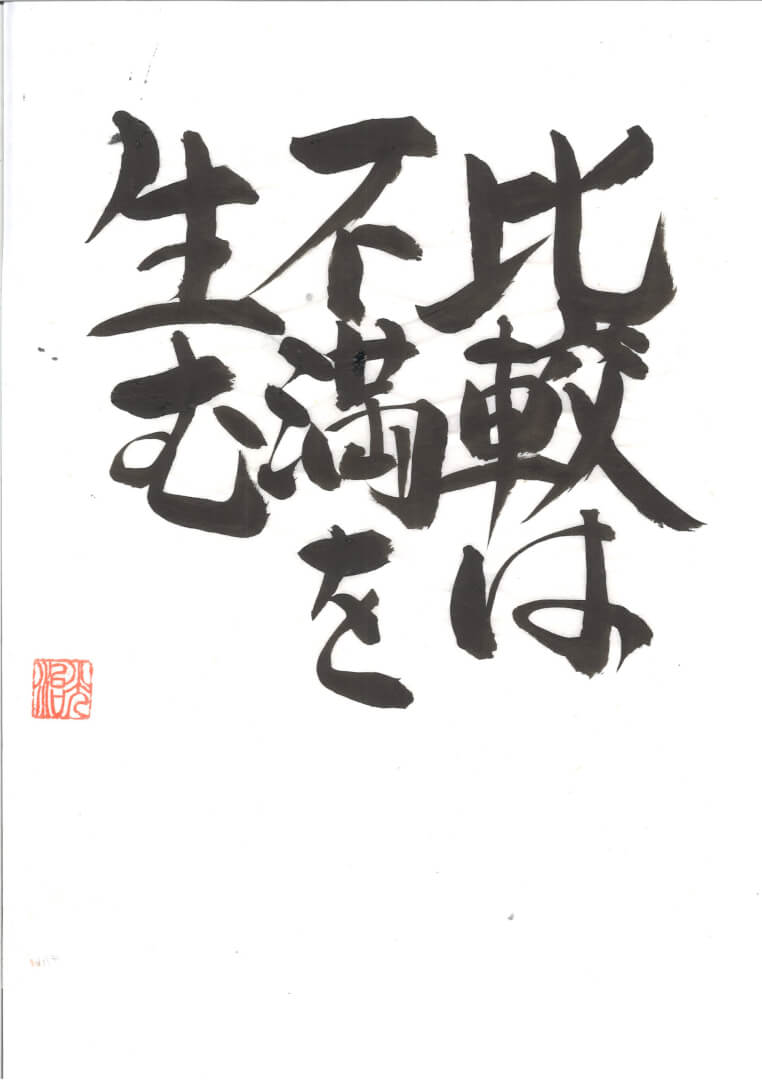 比較は
不満を
生む